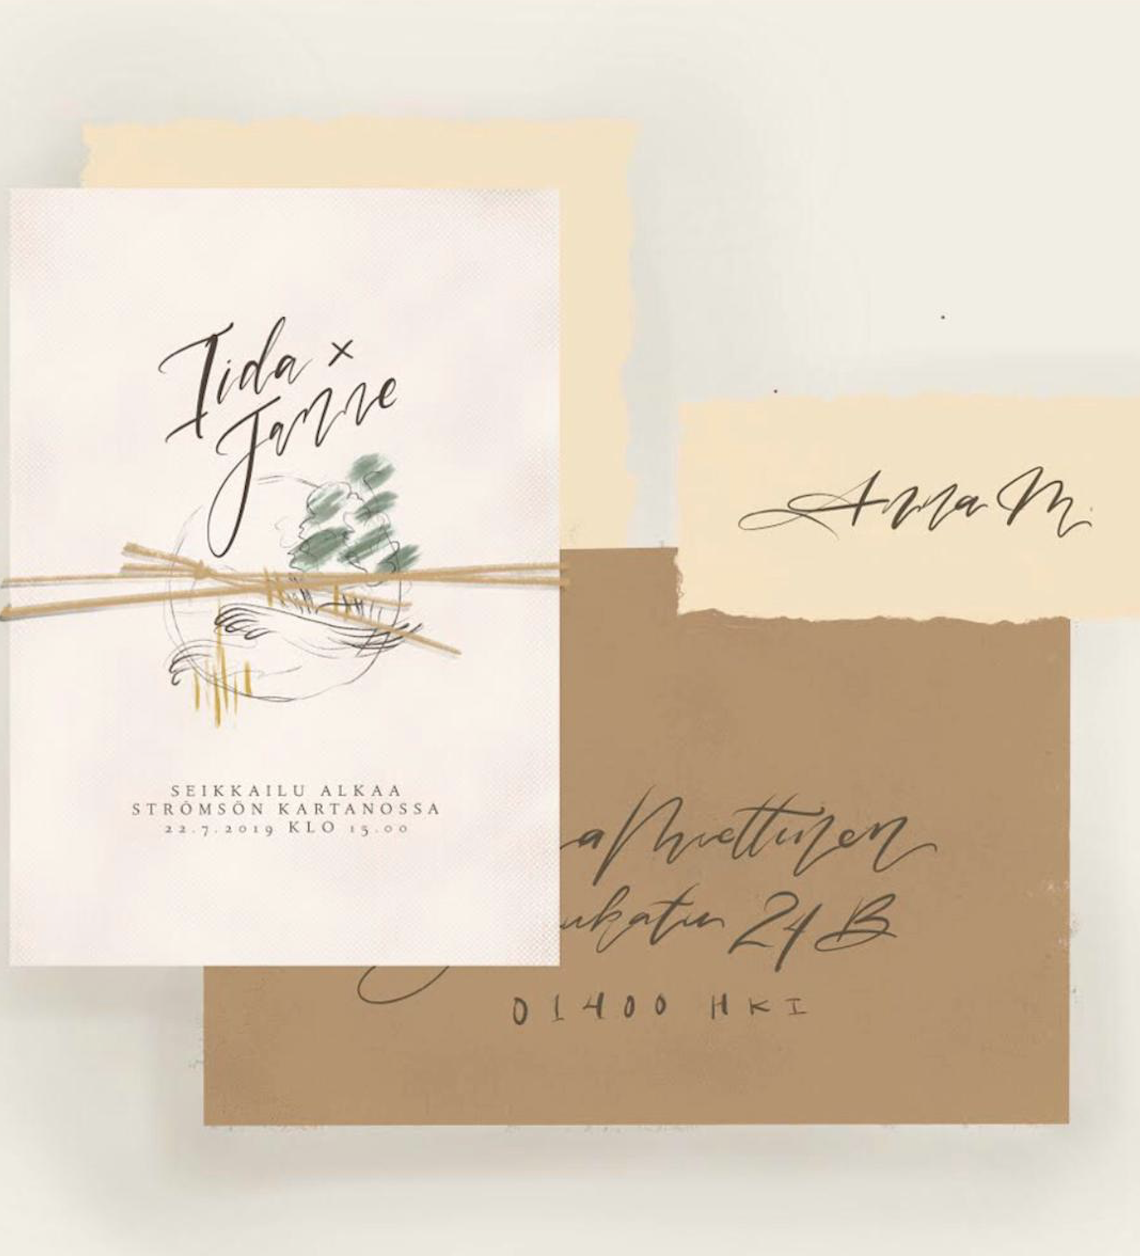 Iida x
Janne
SEIKKAILU ALKAA
STRÖMSÖN KARTANOSSA
22.7.2019 KLO 15.00
Anna M.
a Miettinen
ukatu 24 B
01400 HKI